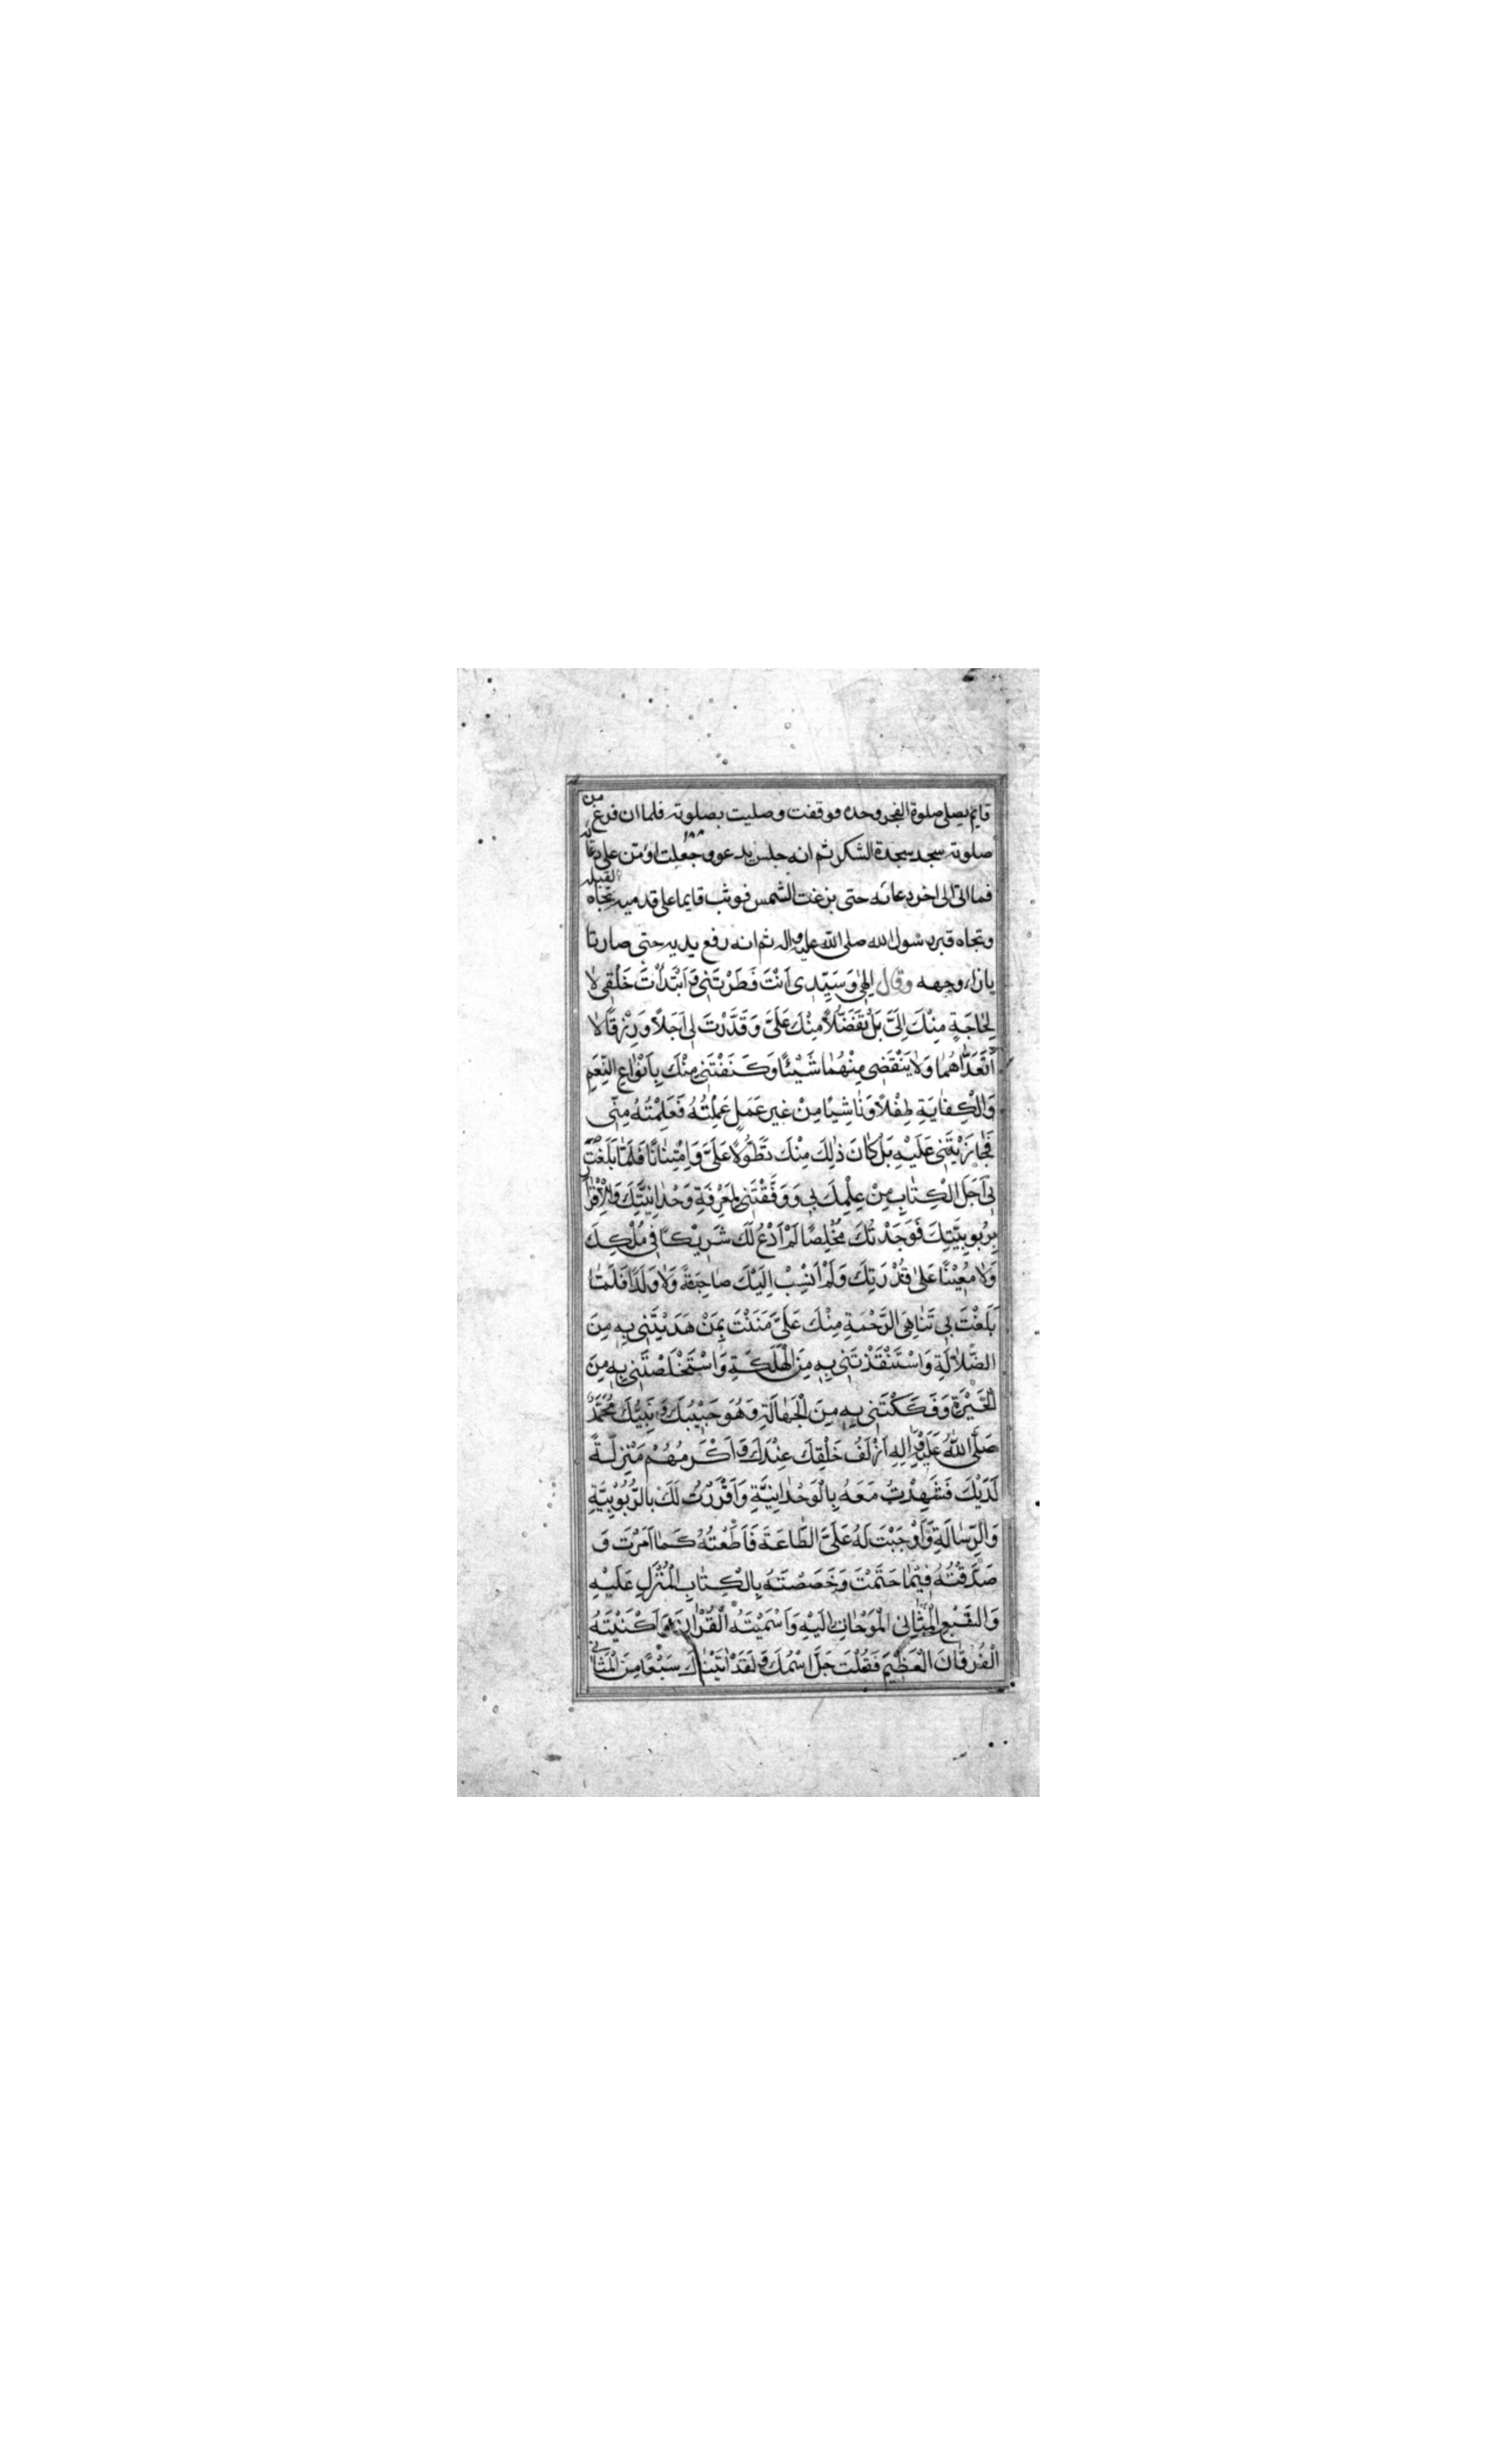 قايم يصلى صلوة الفجر وحده فوقفت وصليت بصلوته فلما ان فرغ من
صلوته سجد سجدة الشكر ثم انه جلس يدعو وجعلت اؤمن على دعائه
فما اتى الى اخر دعائه حتى بزغت الشمس فوثب قايما على قدميه تجاه القبلة
وتجاه قبر رسول الله صلى الله عليه واله ثم انه رفع يديه حتى صارتا
بازاء وجهه وقال اِلٰهى وَسَيِّدِى اَنْتَ فَطَرْتَنى وَابْتَدَاْتَ خَلْقى لا
لِحاجَةٍ مِنْكَ اِلَىَّ بَلْ تَفَضُّلًا مِنْكَ عَلَىَّ وَقَدَّرْتَ لى اَجَلًا وَرِزْقًا لا
اَتَعَدّاهُما وَلا يَنْقَضى مِنْهُما شَيْئًا وَكَنَفْتَنى مِنْكَ بِاَنْواعِ النِّعَمِ
وَالْكِفايَةِ طِفْلًا وَناشِيًا مِنْ غَيرِ عَمَلٍ عَمِلْتُهُ فَعَلِمْتَهُ مِنّى
فَجازَيْتَنى عَلَيْهِ بَلْ كانَ ذٰلِكَ مِنْكَ تَطَوُّلًا عَلَىَّ وَامْتِنانًا فَلَمّا بَلَغْتَ
بى اَجَلَ الْكِتابِ مِنْ عِلْمِكَ بى وَوَفَّقْتَنى لِمَعْرِفَةِ وَحْدانِيَّتِكَ وَالْاِقْرارِ
بِرُبوبِيَّتِكَ فَوَجَدْتُكَ مُخْلِصًا لَمْ اَدْعُ لَكَ شَريْكًا فى مُلْكِكَ
وَلا مُعيْنًا عَلىٰ قُدْرَتِكَ وَلَمْ اَنْسِبْ اِلَيْكَ صاحِبَةً وَلا وَلَدًا فَلَمّا
بَلَغْتَ بى تَناهِىَ الرَّحْمَةِ مِنْكَ عَلَىَّ مَنَنْتَ بِمَنْ هَدَيْتَنى بِهِ مِنَ
الضَّلالَةِ وَاسْتَنْقَذْتَنى بِهِ مِنَ الْهَلَكَةِ وَاسْتَخْلَصْتَنى بِهِ مِنَ
الْحَيْرَةِ وَفَكَكْتَنى بِهِ مِنَ الْجَهالَةِ وَهُوَ حَبيْبُكَ وَنَبِيُّكَ مُحَمَّدٌ
صَلَّى اللهُ عَلَيْهِ وَالِهِ اَزْلَفُ خَلْقِكَ عِنْدَكَ وَاَكْرَمُهُمْ مَنْزِلَةً
لَدَيْكَ فَشَهِدْتُ مَعَهُ بِالْوَحْدانِيَّةِ وَاَقْرَرْتُ لَكَ بِالرُّبُوْبِيَّةِ
وَالرِّسالَةِ وَاَوْجَبْتَ لَهُ عَلَىَّ الطّاعَةَ فَاَطَعْتُهُ كَما اَمَرْتَ وَ
صَدَّقْتُهُ فيْما حَتَمْتَ وَخَصَصْتَهُ بِالْكِتابِ الْمُنْزَلِ عَلَيْهِ
وَالسَّبْعِ الْمَثانى الْمَوْحاتِ اِلَيْهِ وَاَسْمَيْتَهُ الْقُرْانَ وَاَكْنَيْتَهُ
الْفُرْقانَ الْعَظيْمَ فَقُلْتَ جَلَّ اسْمُكَ وَلَقَدْ اتَيْناكَ سَبْعًا مِنَ الْمَثانى